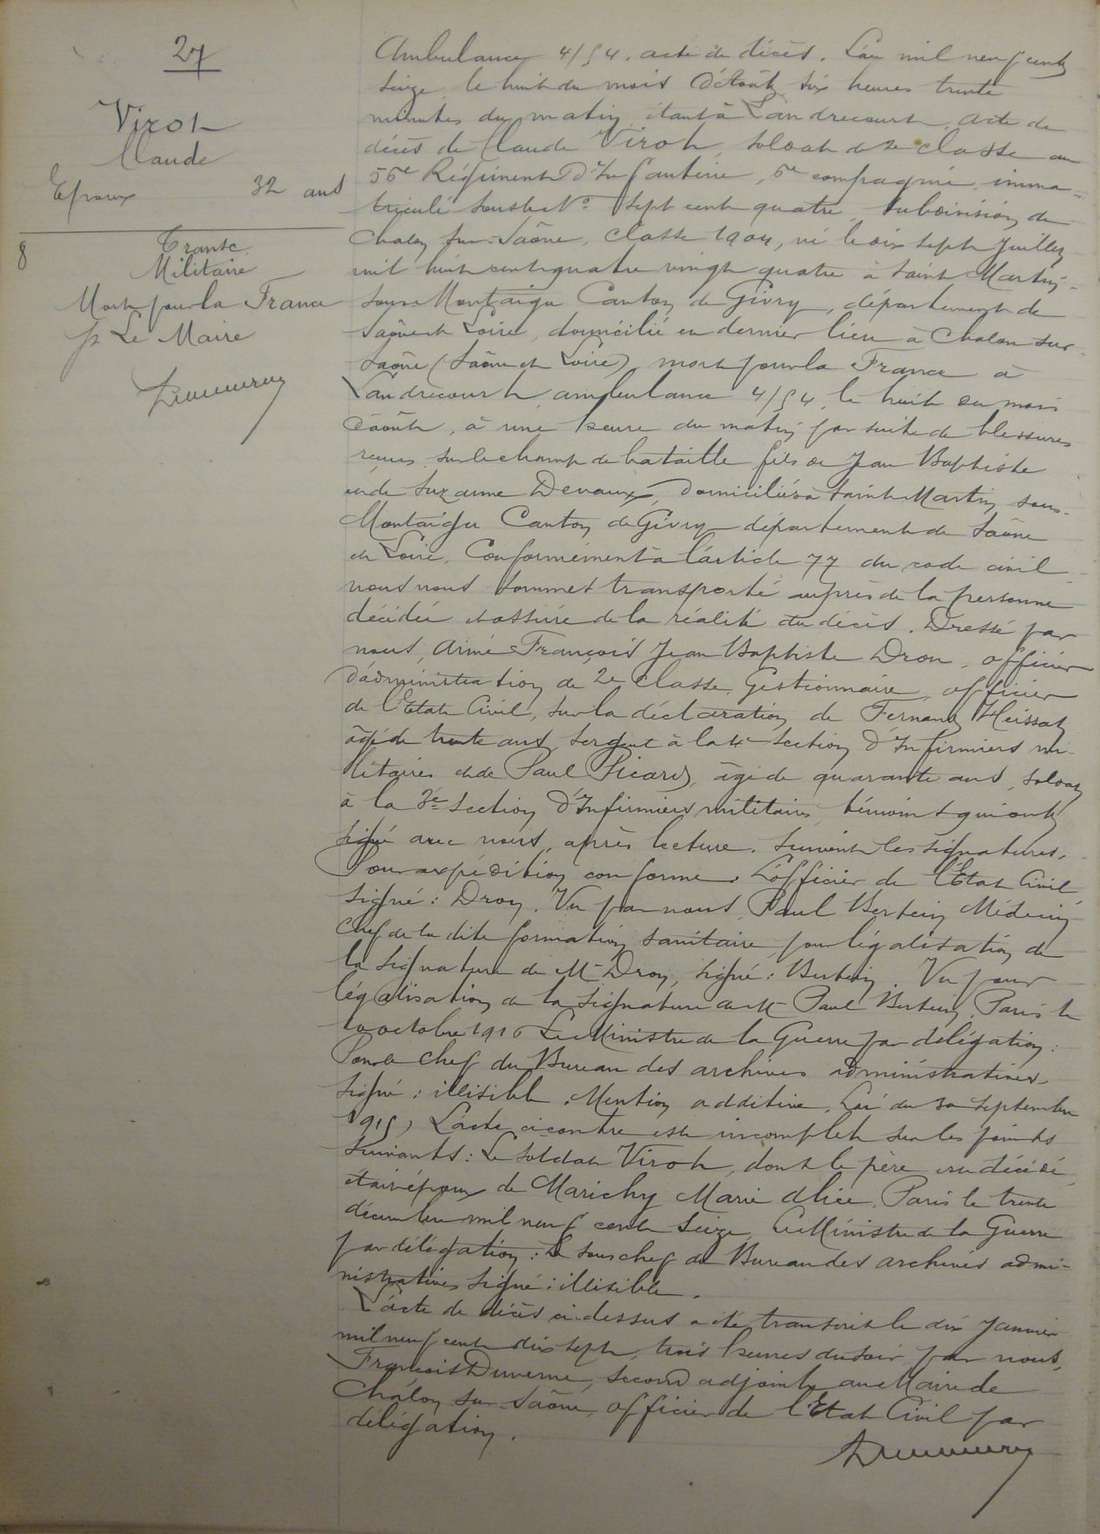 27
Virot
Claude
Epoux 32 ans
8
Transc
Militaire
Mort pour la France
Le Maire
Ambulance 4/54. acte de décès. L'an mil neuf cent
seize, le huit du mois d'Août, six heures trente
minutes du matin, étant à Landrecourt, acte de
décès de Claude Virot, soldat de 2e classe au
56e Régiment d'Infanterie, 5e compagnie, imma-
triculé sous le No Sept cent quatre, subdivision de
Chalon sur Saône, classe 1904, né le dix sept Juillet
mil huit cent quatre vingt quatre à Saint Martin-
sous Montaigu Canton de Givry, département de
Saône et Loire, domicilié en dernier lieu à Chalon sur
Saône (Saône et Loire), mort pour la France à
Landrecourt, ambulance 4/54, le huit du mois
d'août, à une heure du matin par suite de blessures
reçues sur le champ de bataille fils de Jean Baptiste
et de Suzanne Devaux, domiciliés à Saint Martin sous-
Montaigu Canton de Givry département de Saône
et Loire. Conformément à l'article 77 du code civil
nous nous sommes transporté auprès de la personne
décédée et assuré de la réalité du décès. Dressé par
nous, Aimé François Jean Baptiste Dron, officier
d'administration de 2e classe, Gestionnaire, officier
de l'Etat Civil, sur la déclaration de Fernand
âgé de trente ans, Sergent à la section d'Infirmiers mi-
litaires et de Paul Picard, âgé de quarante ans, soldat
à la section d'Infirmiers militaires, témoins qui ont
signé avec nous, après lecture. Suivent les signatures.
Pour expédition conforme, L'officier de l'Etat Civil
Signé: Dron. Vu par nous, Paul Bertein Médecin
Chef de la dite formation sanitaire pour légalisation de
la signature de Mr Dron, signé: Bertein. Vu pour
légalisation de la signature de Mr Paul Bertein, Paris le
10 octobre 1916 Le Ministre de la Guerre par délégation:
Pour le chef du Bureau des archives administratives.
Signé: illisible. Mention additive. Loi du 30 septembre
1915, L'acte ci contre est incomplet sur les points
suivants: Le soldat Virot, dont le père est décédé,
était époux de Marichy Marie Alice. Paris le trente
décembre mil neuf cent seize. Le Ministre de la Guerre
par délégation: Le sous chef du Bureau des archives admi-
nistratives signé: illisible.
L'acte de décès ci dessus a été transcrit le dix Janvier
mil neuf cent dix sept, trois heures du soir par nous,
François Duverne, second adjoint au Maire de
Chalon sur Saône, officier de l'Etat Civil par
délégation.